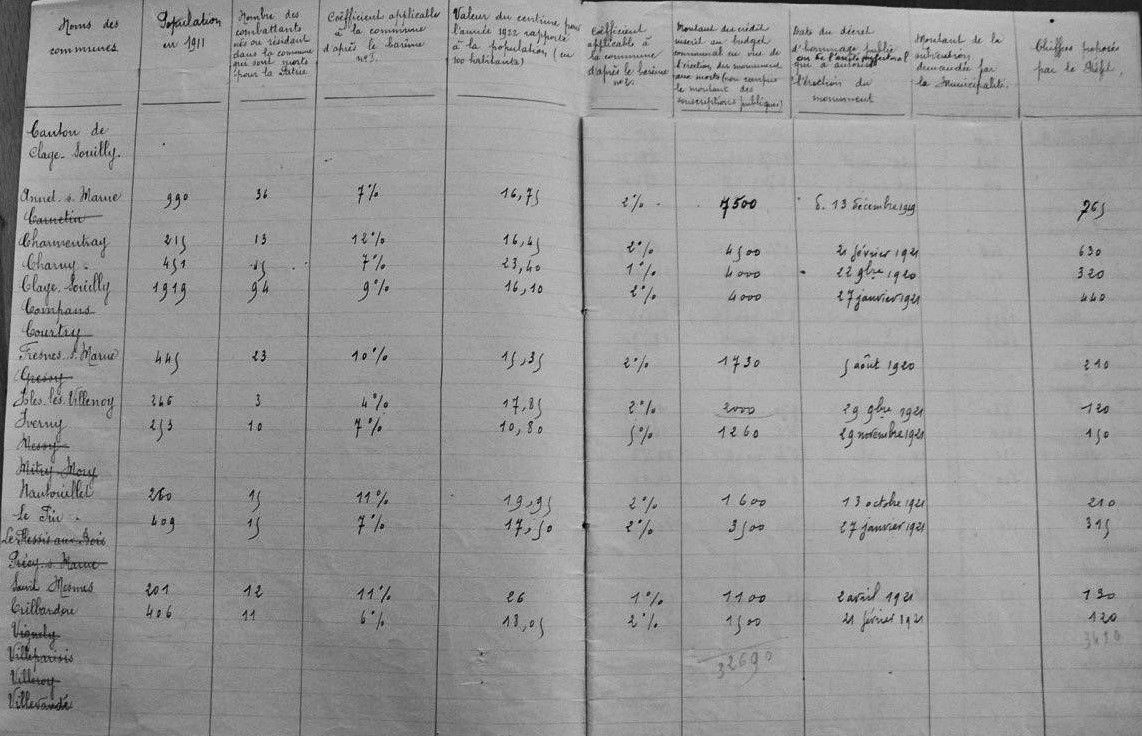 Noms des communes. | Population en 1911 | Nombre des combattants nés ou résidant dans la commune qui sont morts pour la Patrie | Coëfficient applicable à la commune d'après le barème n° 1. | Valeur du centime pour l'année 1922 rapporté à la population (en 100 habitants) | Coëfficient applicable à la commune d'après le barème n° 2. | Montant du crédit inscrit au budget communal en vue de l'érection des monument aux morts (non compris le montant des souscriptions publiques) | Date du décret d'hommage public ou de l'arrêté préfectoral qui a autorisé l'érection du monument | Montant de la subvention demandée par la Municipalité. | Chiffres proposés par le Préfet.
Canton de
Claye-Souilly.
Annet s. Marne | 990 | 36 | 7% | 16,75 | 2% | 7500 | d. 13 décembre 1919 | 765
Carnetin
Charmentray | 215 | 13 | 12% | 16,45 | 2% | 4500 | 21 février 1921 | 630
Charny | 451 | 25 | 7% | 23,40 | 1% | 4000 | 22 9bre 1920 | 320
Claye-Souilly | 1919 | 94 | 9% | 16,10 | 2% | 4000 | 27 janvier 1921 | 440
Compans
Courtry
Fresnes s. Marne | 445 | 23 | 10% | 15,35 | 2% | 1730 | 5 août 1920 | 210
Gressy
Isles-les-Villenoy | 246 | 3 | 4% | 17,85 | 2% | 2000 | 29 9bre 1921 | 120
Iverny | 253 | 10 | 7% | 10,80 | 5% | 1260 | 29 novembre 1921 | 150
Messy
Mitry-Mory
Nantouillet | 260 | 15 | 11% | 19,95 | 2% | 1600 | 13 octobre 1921 | 210
Le Pin | 409 | 15 | 7% | 17,50 | 2% | 3500 | 27 janvier 1921 | 315
Le Plessis aux Bois
Précy s. Marne
Saint Mesmes | 201 | 12 | 11% | 26 | 1% | 1100 | 2 avril 1921 | 130
Trilbardou | 406 | 11 | 6% | 18,05 | 2% | 1500 | 21 février 1921 | 120
Vignely
Villeparisis | 32690
Villeroy
Villevaudé